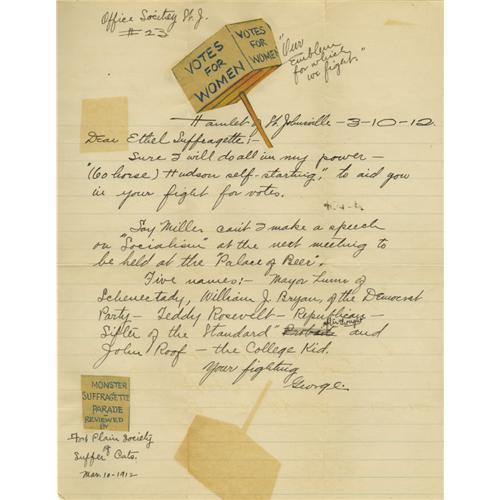 Office Society St. J.
# 23
VOTES
FOR
WOMEN
VOTES
FOR
WOMEN
"Our
Emblem
for which
we fight."
Hamlet St. Johnsville - 3-10-12.
Dear Ethel Suffragette:-
Sure I will do all in my power -
"(60 horse) Hudson self-starting," to aid you
in your fight for votes.
Say Miller can't I make a speech
on "Socialism" at the next meeting to
be held at the "Palace of Beer".
Five names:- Mayor Lunn of
Schenectady, William J. Bryan, of the Democrat
Party - Teddy Rosevelt - Republican -
Sifter of the Standard" and
John Roof - the College Kid.
Your fighting
George.
MONSTER
SUFFRAGETTE
PARADE
REVIEWED
BY
Fort Plain Society
of
Suffer Cats.
Mar. 10 - 1912